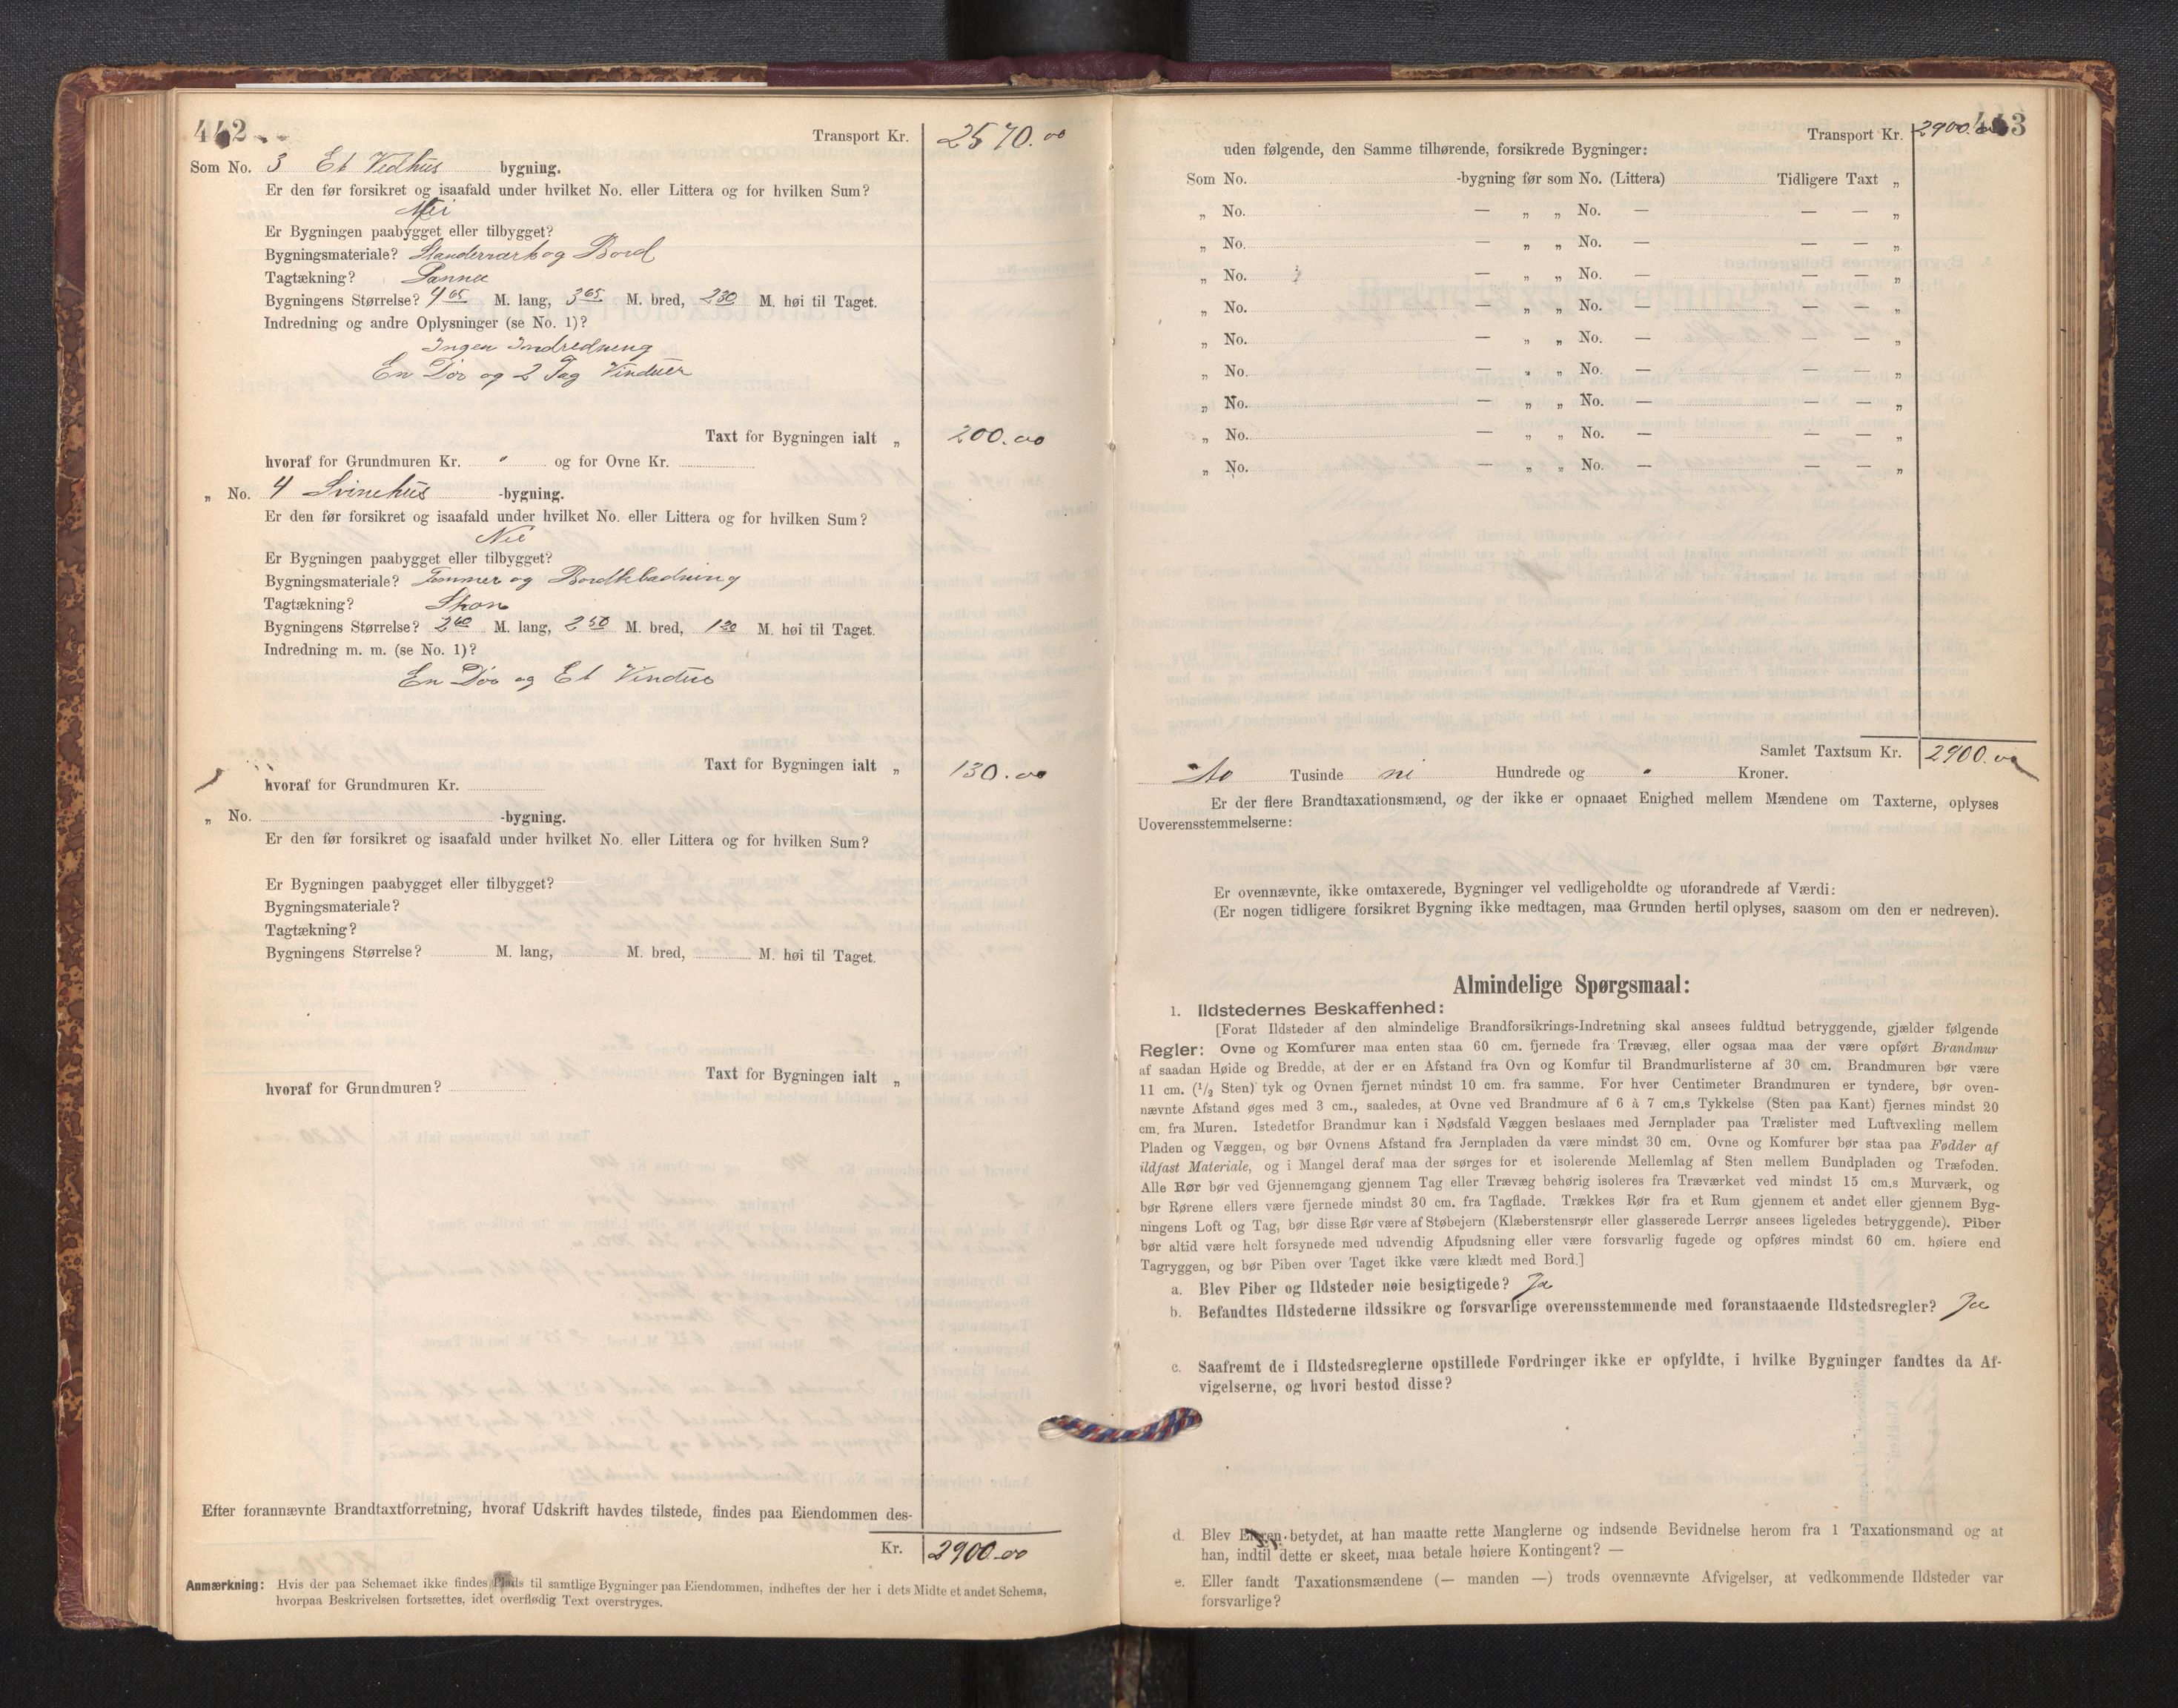 442
Transport Kr. 2570.00
Som No. 3 Et Vedhus bygning.
Er den før forsikret og isaafald under hvilket No. eller Littera og for hvilken Sum?
Nei
Er Bygningen paabygget eller tilbygget?
Bygningsmateriale? Standerværk og Bord
Tagtækning? Panne
Bygningens Størrelse? 4 65 M. lang, 3 65 M. bred, 2 30 M. høi til Taget.
Indredning og andre Oplysninger (se No. 1)?
Ingen Indredning
En Dør og 2 Fag Vinduer
Taxt for Bygningen ialt „ 200.00
hvoraf for Grundmuren Kr. " og for Ovne Kr.
„ No. 4 Svinehus -bygning.
Er den før forsikret og isaafald under hvilket No. eller Littera og for hvilken Sum?
Nei
Er Bygningen paabygget eller tilbygget?
Bygningsmateriale? Tømmer og Bordklædning
Tagtækning?
Bygningens Størrelse? 3 60 M. lang, 2 50 M. bred, 1 20 M. høi til Taget.
Indredning m. m. (se No. 1)?
En Dør og Et Vindue
Taxt for Bygningen ialt „ 130.00
hvoraf for Grundmuren Kr.
„ No. -bygning.
Er den før forsikret og isaafald under hvilket No. eller Littera og for hvilken Sum?
Er Bygningen paabygget eller tilbygget?
Bygningsmateriale?
Tagtækning?
Bygningens Størrelse? M. lang, M. bred, M. høi til Taget.
Taxt for Bygningen ialt „
hvoraf for Grundmuren?
Efter forannævnte Brandtaxtforretning, hvoraf Udskrift havdes tilstede, findes paa Eiendommen des-
Kr. 2900.00
Anmærkning: Hvis der paa Schemaet ikke findes Plads til samtlige Bygninger paa Eiendommen, indheftes der her i dets Midte et andet Schema,
hvorpaa Beskrivelsen fortsættes, idet overflødig Text overstryges.
443
Transport Kr. 2900.00
uden følgende, den Samme tilhørende, forsikrede Bygninger:
Som No. -bygning før som No. (Littera) Tidligere Taxt „
„ No. — „ „ No. — — — „
„ No. — „ „ No. — — — „
„ No. — „ „ No. — — — „
„ No. — „ „ No. — — — „
„ No. — „ „ No. — — — „
„ No. — „ „ No. — — — „
„ No. — „ „ No. — — — „
„ No. — „ „ No. — — — „
„ No. — „ „ No. — — — „
Samlet Taxtsum Kr. 2900.00
To Tusinde ni Hundrede og " Kroner.
Er der flere Brandtaxationsmænd, og der ikke er opnaaet Enighed mellem Mændene om Taxterne, oplyses
Uoverensstemmelserne:
Er ovennævnte, ikke omtaxerede, Bygninger vel vedligeholdte og uforandrede af Værdi:
(Er nogen tidligere forsikret Bygning ikke medtagen, maa Grunden hertil oplyses, saasom om den er nedreven).
Almindelige Spørgsmaal:
1. Ildstedernes Beskaffenhed:
[Forat Ildsteder af den almindelige Brandforsikrings-Indretning skal ansees fuldtud betryggende, gjælder følgende
Regler: Ovne og Komfurer maa enten staa 60 cm. fjernede fra Trævæg, eller ogsaa maa der være opført Brandmur
af saadan Høide og Bredde, at der er en Afstand fra Ovn og Komfur til Brandmurlisterne af 30 cm. Brandmuren bør være
11 cm. (1/2 Sten) tyk og Ovnen fjernet mindst 10 cm. fra samme. For hver Centimeter Brandmuren er tyndere, bør oven-
nævnte Afstand øges med 3 cm., saaledes, at Ovne ved Brandmure af 6 à 7 cm.s Tykkelse (Sten paa Kant) fjernes mindst 20
cm. fra Muren. Istedetfor Brandmur kan i Nødsfald Væggen beslaaes med Jernplader paa Trælister med Luftvexling mellem
Pladen og Væggen, og bør Ovnens Afstand fra Jernpladen da være mindst 30 cm. Ovne og Komfurer bør staa paa Fødder af
ildfast Materiale, og i Mangel deraf maa der sørges for et isolerende Mellemlag af Sten mellem Bundpladen og Træfoden.
Alle Rør bør ved Gjennemgang gjennem Tag eller Trævæg behørig isoleres fra Træværket ved mindst 15 cm.s Murværk, og
bør Rørene ellers være fjernede mindst 30 cm. fra Tagflade. Trækkes Rør fra et Rum gjennem et andet eller gjennem Byg-
ningens Loft og Tag, bør disse Rør være af Støbejern (Klæberstensrør eller glasserede Lerrør ansees ligeledes betryggende). Piber
bør altid være helt forsynede med udvendig Afpudsning eller være forsvarlig fugede og opføres mindst 60 cm. høiere end
Tagryggen, og bør Piben over Taget ikke være klædt med Bord.]
a. Blev Piber og Ildsteder nøie besigtigede? Ja
b. Befandtes Ildstederne ildssikre og forsvarlige overensstemmende med foranstaaende Ildstedsregler? Ja
c. Saafremt de i Ildstedsreglerne opstillede Fordringer ikke er opfyldte, i hvilke Bygninger fandtes da Af-
vigelserne, og hvori bestod disse?
d. Blev Eieren betydet, at han maatte rette Manglerne og indsende Bevidnelse herom fra 1 Taxationsmand og at
han, indtil dette er skeet, maa betale høiere Kontingent? —
e. Eller fandt Taxationsmændene (— manden —) trods ovennævnte Afvigelser, at vedkommende Ildsteder var
forsvarlige?